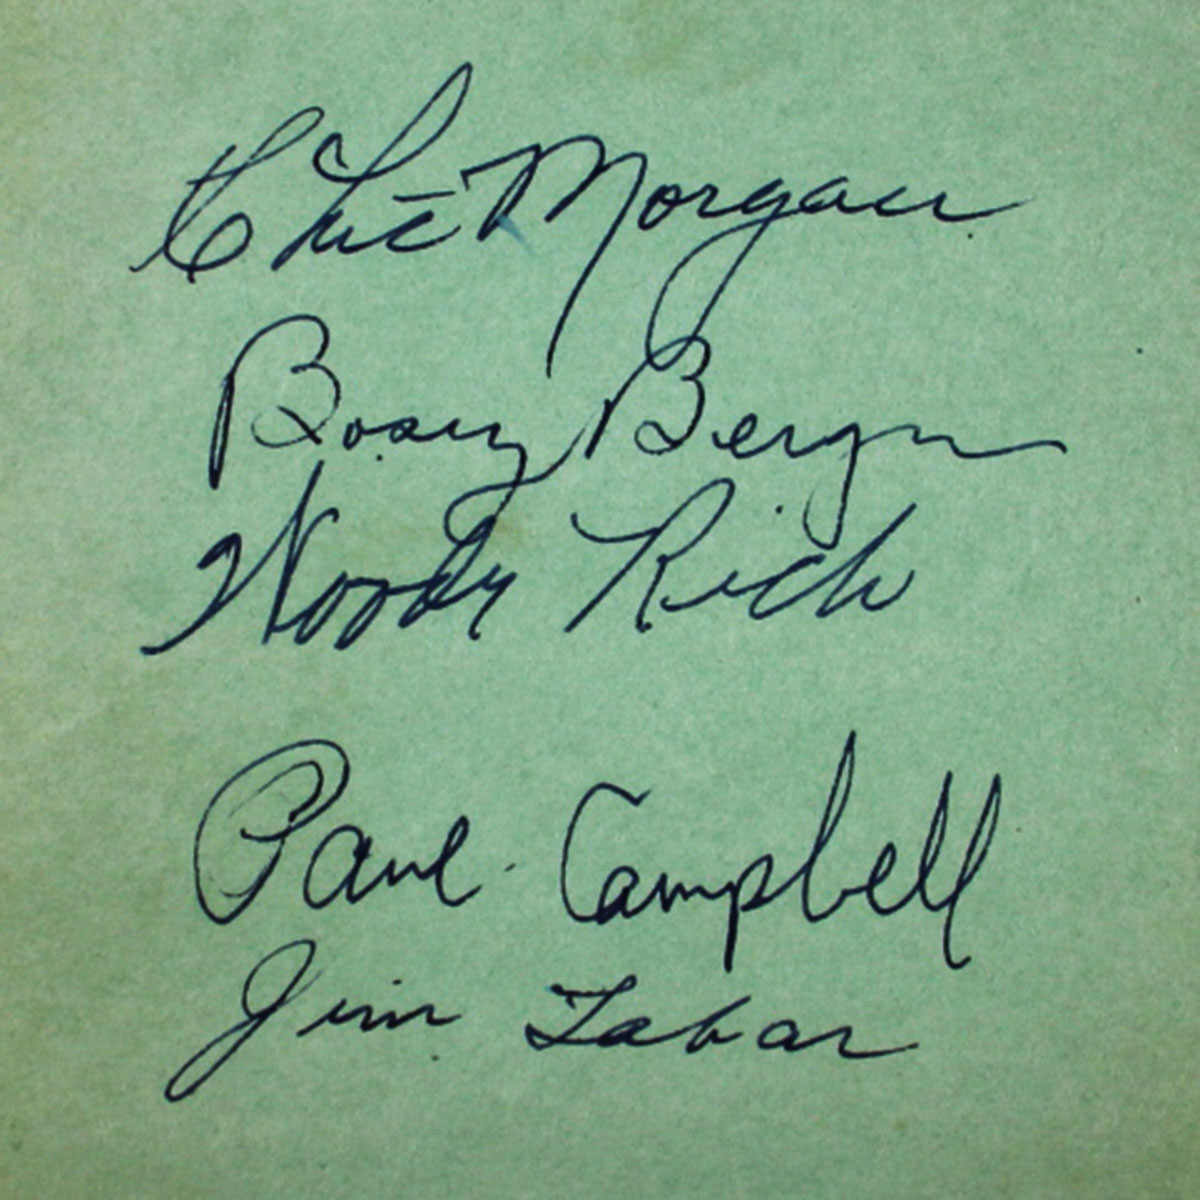 Chic Morgan
Boozy Berger
Woody Rich
Paul Campbell
Jim Tabar